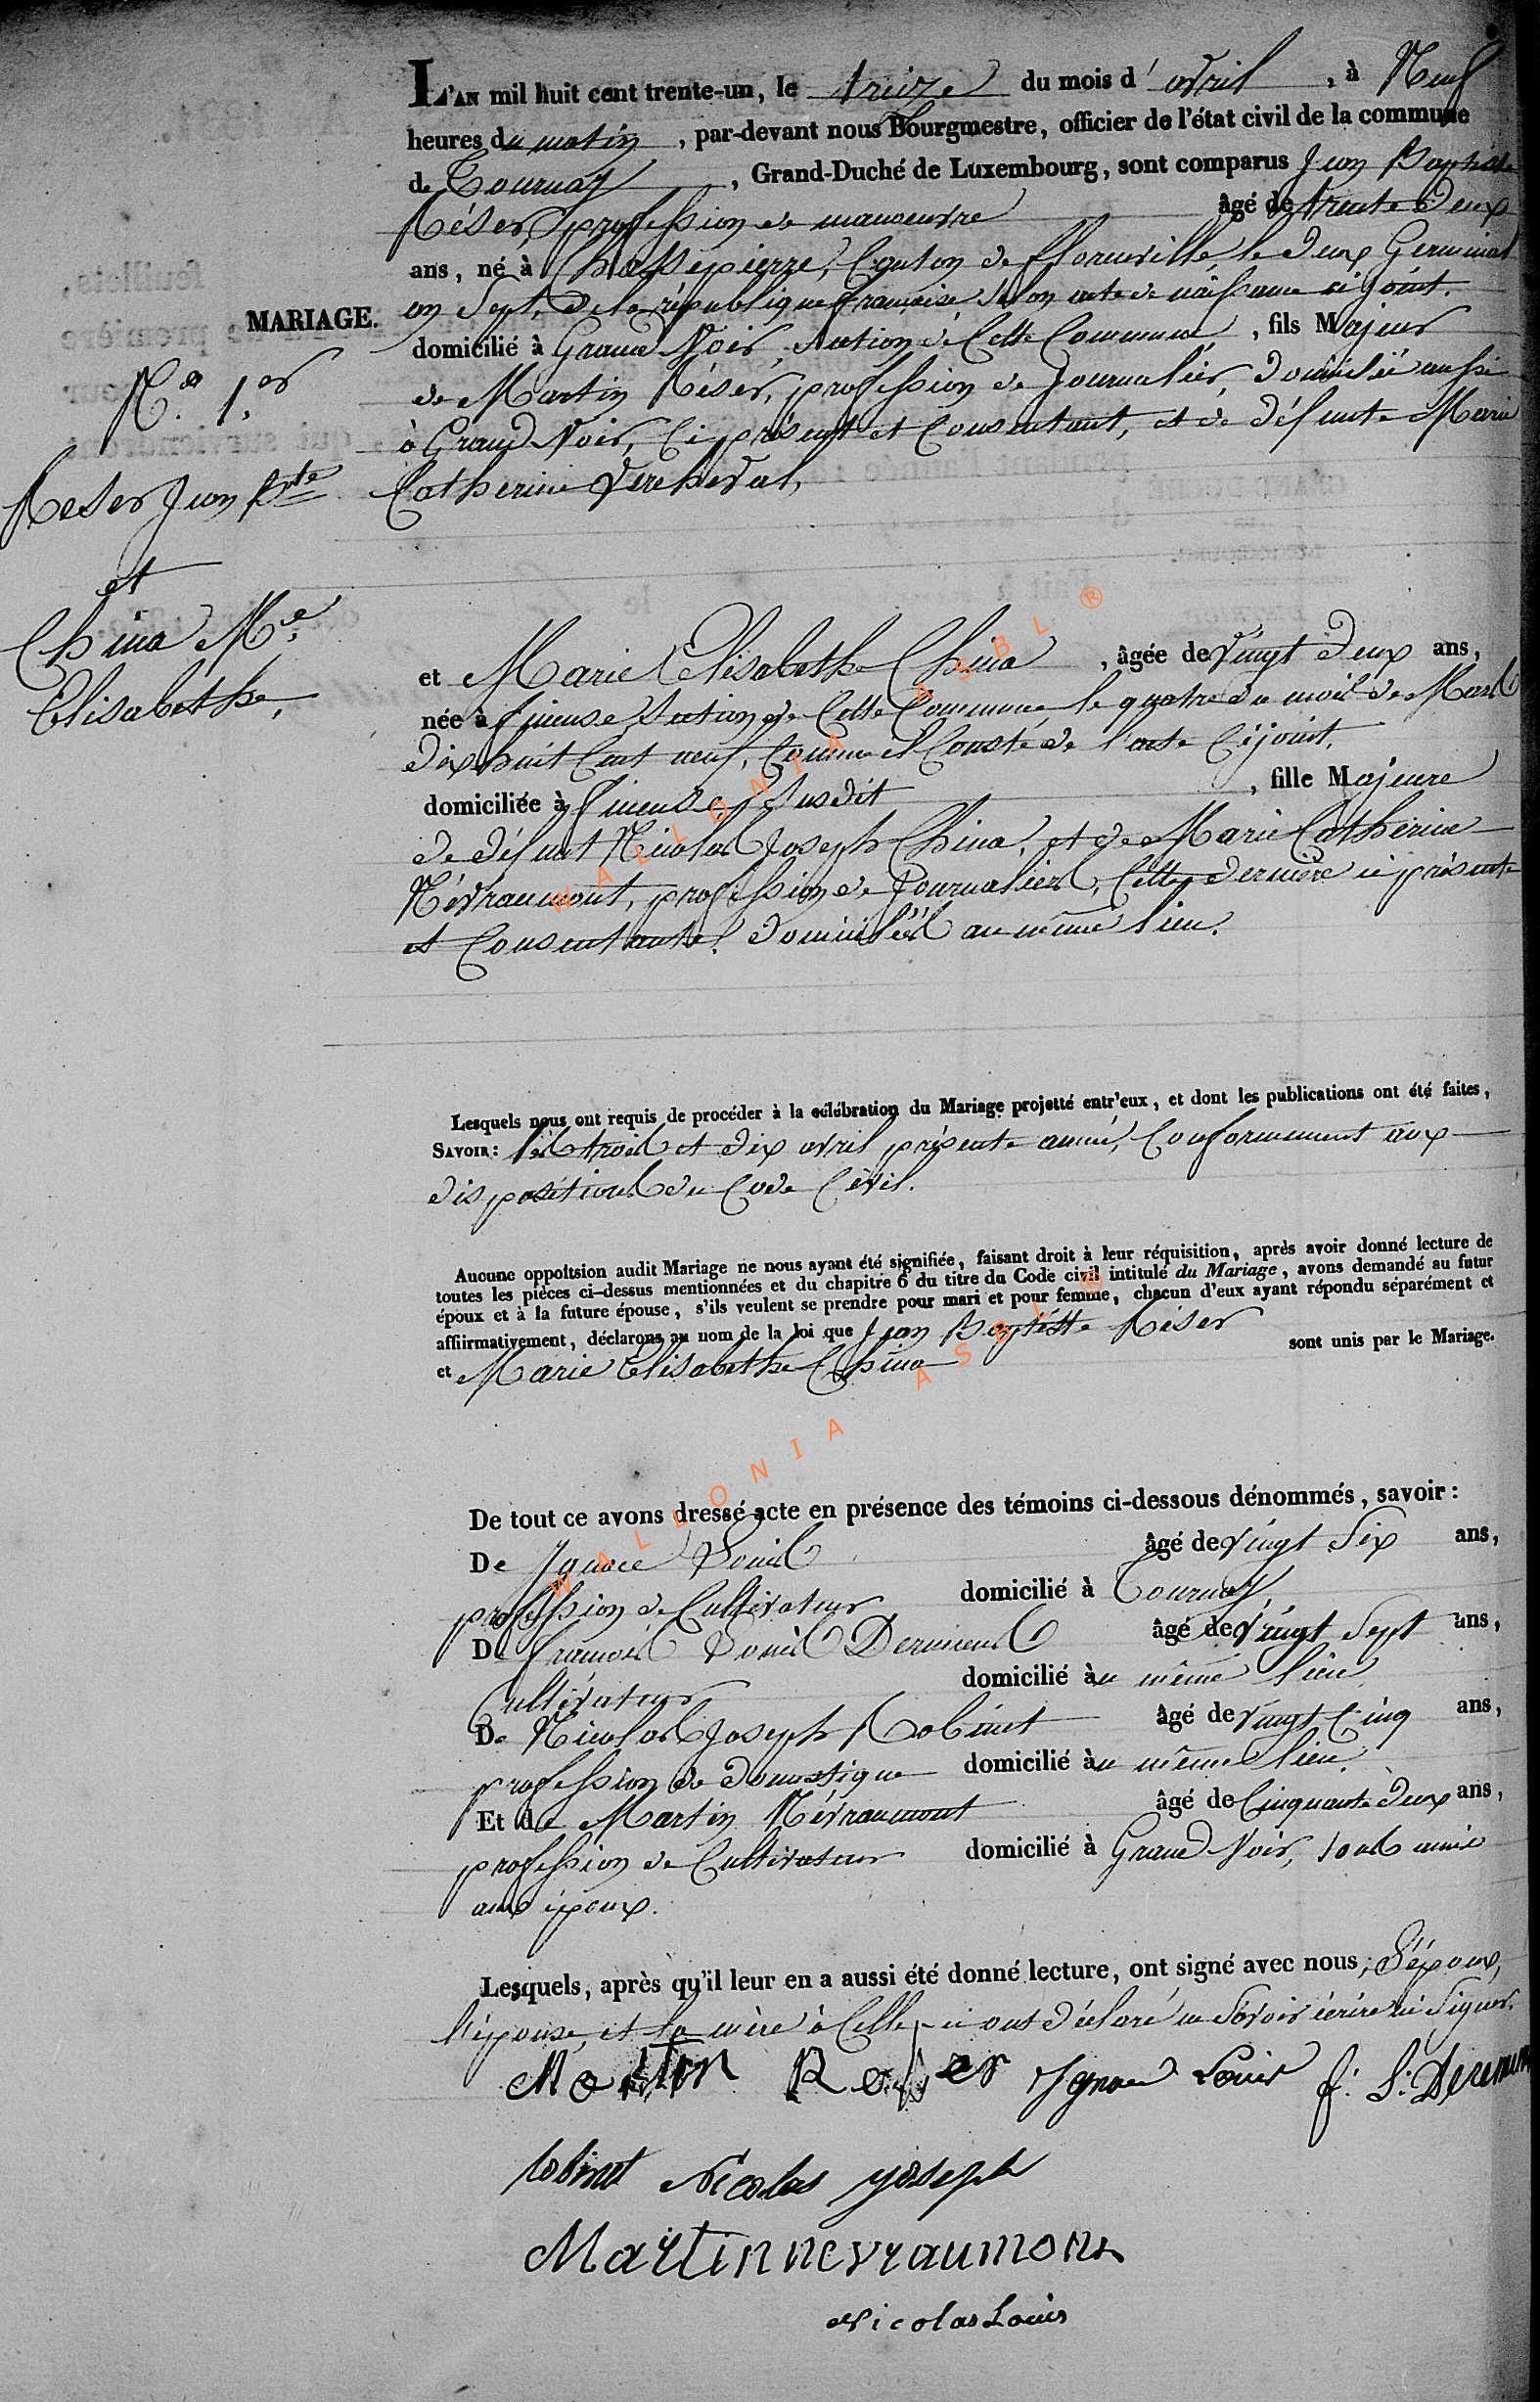 L'AN mil huit cent trente-un, le treize du mois d'avril, à Neuf
heures du matin, par-devant nous Bourgmestre, officier de l'état civil de la commune
de Tournay, Grand-Duché de Luxembourg, sont comparus Jean Baptiste
Réser, profession de manoeuvre âgé de trente deux
ans, né à Chassepierre, Canton de florenville, le deux Germinal
an Sept, de la république française selon acte de naissance ci joint.
MARIAGE.
domicilié à Grand Voir, Section de Cette Commune, fils Majeur
N.º 1.er
de Martin Réser, profession de Journalier, domicilié aussi
à Grand Voir, Ci présent et Consentant, et de défunte Marie
Reser Jean Bte
Catherine Vercheval,
et
China M.e
Elisabethe,
et Marie Elisabethe China, âgée de Vingt deux ans,
née à fineuse Section de Cette Commune le quatre du mois de Mars
dix huit Cent neuf, Comme il Conste de l'acte Cijoint.
domiciliée à fineuse, Susdit, fille Majeure
de défunt Nicolas Joseph China, et de Marie Catherine
Névraumont, profession de Journaliers, Cette dernière ci présente
et Consentante. domiciliés au même lieu.
Lesquels nous ont requis de procéder à la célébration du Mariage projetté entr'eux, et dont les publications ont été faites,
SAVOIR: les trois et dix avril présente année, Conformement aux
dispositions du Code Civil.
Aucune oppoitsion audit Mariage ne nous ayant été signifiée, faisant droit à leur réquisition, après avoir donné lecture de
toutes les pièces ci-dessus mentionnées et du chapitre 6 du titre du Code civil intitulé du Mariage, avons demandé au futur
époux et à la future épouse, s'ils veulent se prendre pour mari et pour femme, chacun d'eux ayant répondu séparément et
affiirmativement, déclarons au nom de la loi que Jean Baptiste Réser
et Marie Elisabethe China sont unis par le Mariage.
De tout ce avons dressé acte en présence des témoins ci-dessous dénommés, savoir:
De Ignace Louis âgé de vingt Six ans,
profession de Cultivateur domicilié à Tournay
De françois Louis Deremens âgé de Vingt Sept ans,
Cultivateur domicilié au même lieu
De Nicolas Joseph Robinet âgé de vingt Cinq ans,
profession de domestique domicilié au même lieu.
Et de Martin Névraumont âgé de Cinquante deux ans,
profession de Cultivateur domicilié à Grand Voir, tous amis
aux époux.
Lesquels, après qu'il leur en a aussi été donné lecture, ont signé avec nous, L'époux,
l'épouse, et la mère à Celle-ci ont déclaré ne Savoir écrire ni Signer.
Martin Reser Ignace Louis f: L: Deremen
robinet Nicolas joseph
Martin nevraumont
Nicolas Louis
WALLONIA ASBL ®
WALLONIA ASBL ®